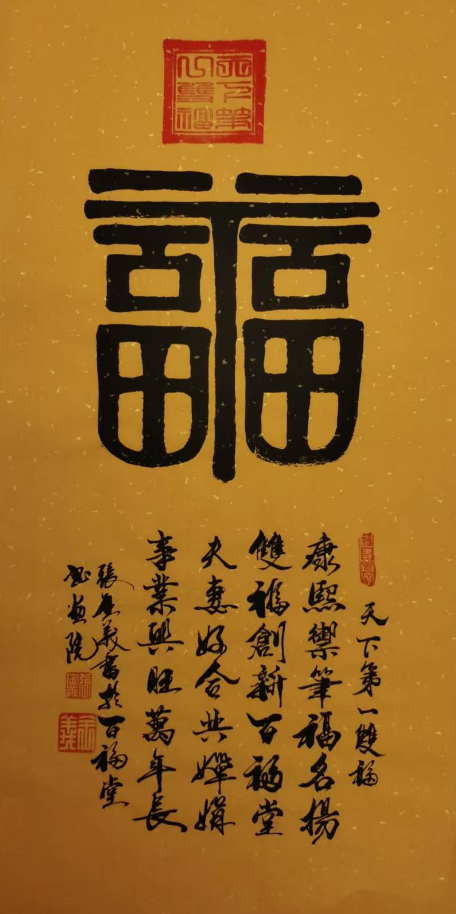 福
天下第一雙福
康熙禦筆福名揚
雙福創新百福堂
夫妻好合共嬋娟
事業興旺萬年長
張應義書於百福堂
書畫院